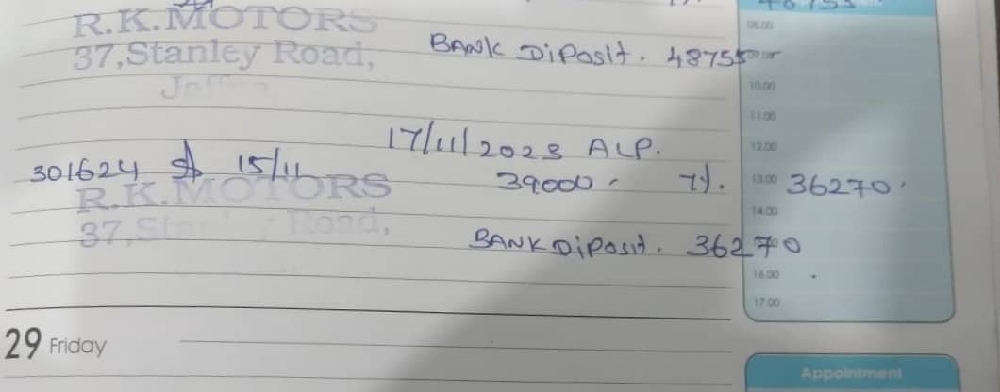 48755
R.K.MOTORS
37,Stanley Road,
BANK DiPosit. 48755
08.00
10.00
11.00
17/11/2023 ALP.
12.00
301624 15/11
39000 - 7%.
13.00 36270.
R.K.MOTORS
37, Road,
14.00
BANK DiPosit. 36270
16.00
17.00
29 Friday
Appointment